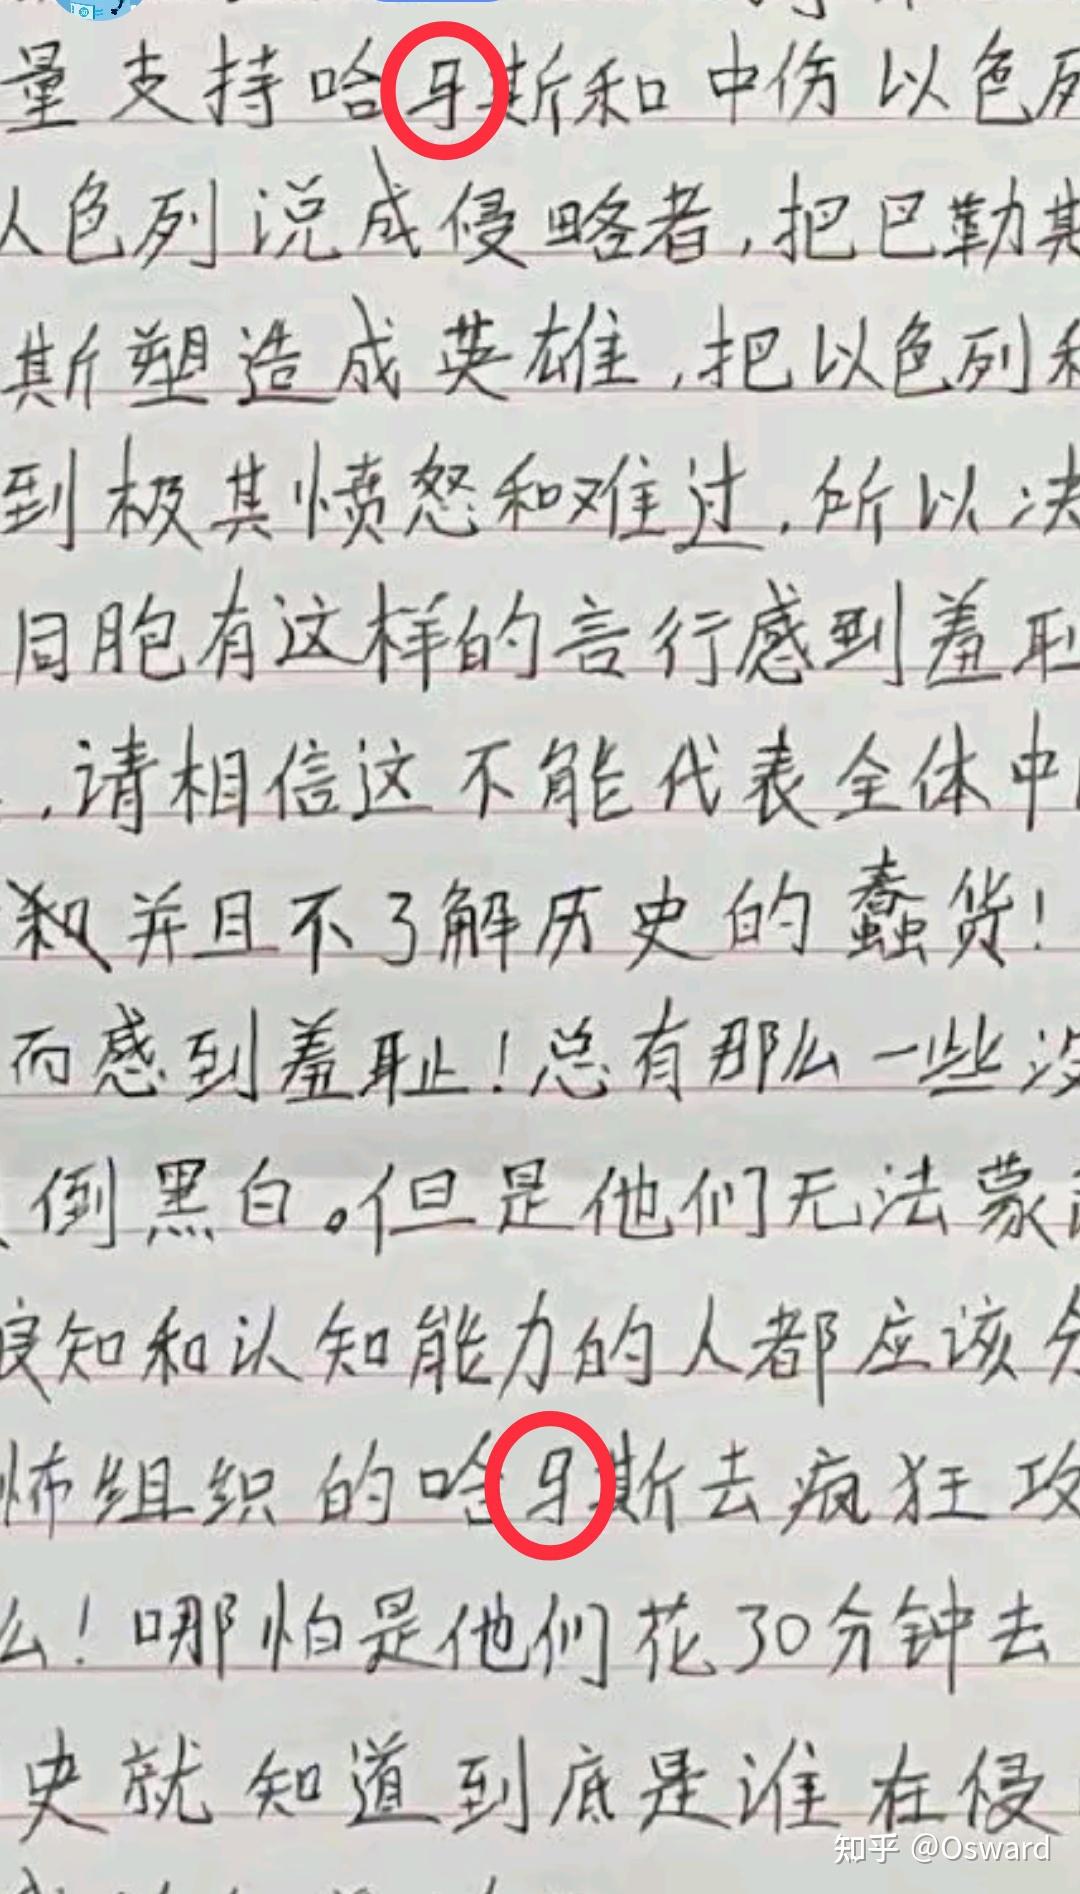 量支持哈牙斯和中伤以色列
以色列说成侵略者,把巴勒斯
斯塑造成英雄,把以色列和
到极其愤怒和难过,所以决
同胞有这样的言行感到羞耻
,请相信这不能代表全体中
并且不了解历史的蠢货!
而感到羞耻!总有那么一些没
倒黑白。但是他们无法蒙
良知和认知能力的人都应该分
怖组织的哈牙斯去疯狂攻
么!哪怕是他们花30分钟去
史就知道到底是谁在侵
知乎 @Osward